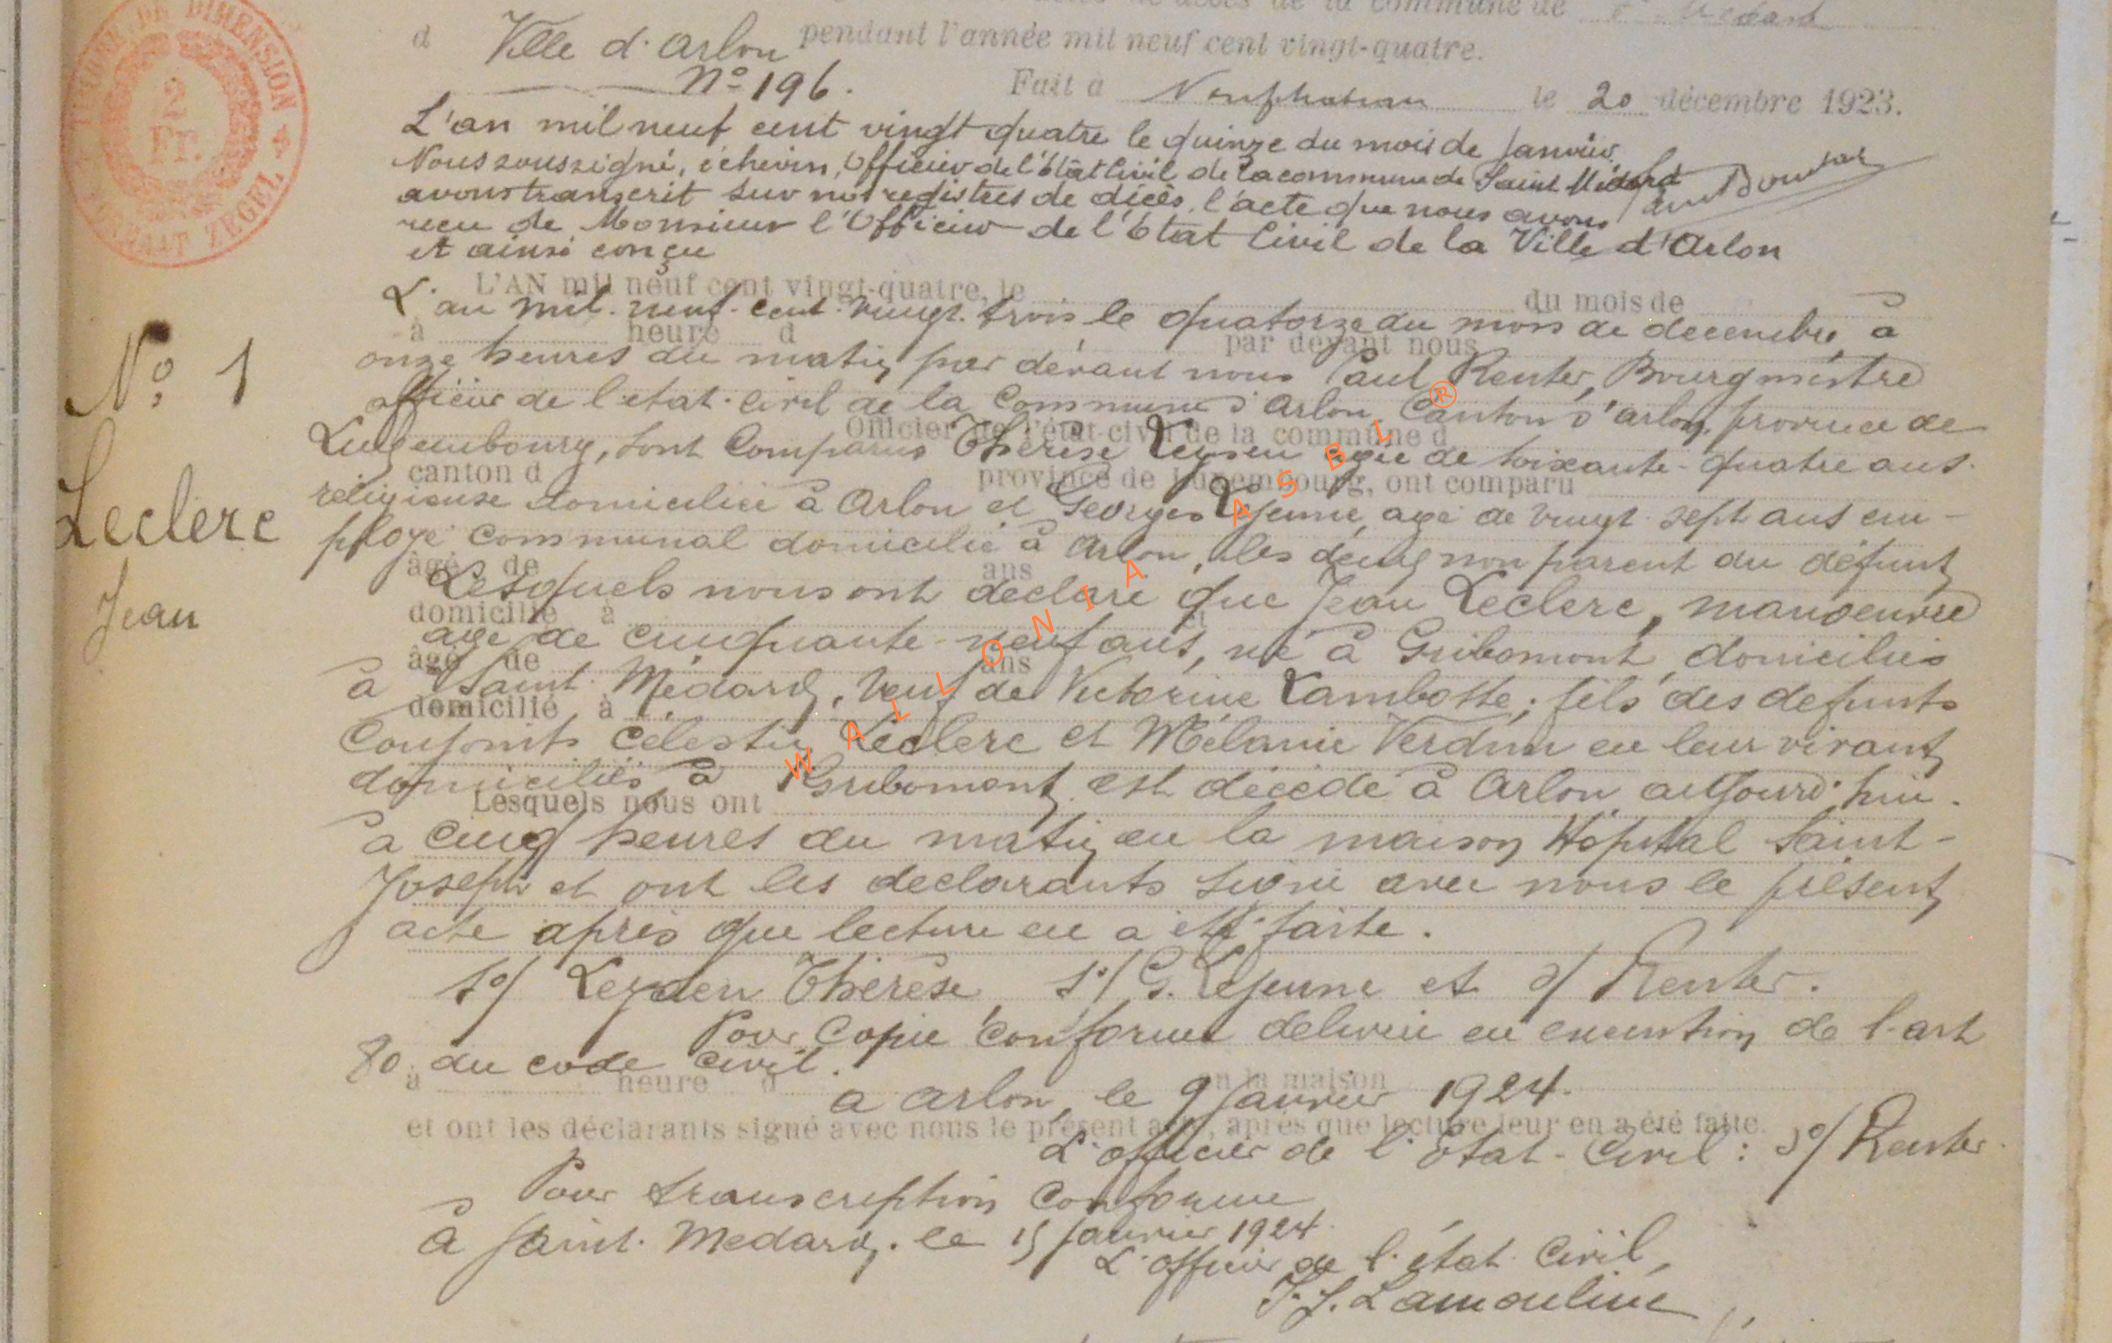 de décès de la commune de St Médard
d Ville d'Arlon pendant l'année mil neuf cent vingt-quatre.
N° 196. Fait à Neufchateau le 20 décembre 1923.
TIMBRE DE DIMENSION
2
Fr.
FORMAAT ZEGEL
L'an mil neuf cent vingt quatre le quinze du mois de Janvier
Nous soussigné, échevin, Officier de l'Etat Civil de la commune de Saint Médard
avons transcrit sur nos registres de décès, l'acte que nous avons
reçu de Monsieur l'Officier de l'Etat Civil de la Ville d'Arlon
et ainsi conçu
L'AN mil neuf cent vingt-quatre, le du mois de
L'an mil neuf cent vingt trois le quatorze du mois de decembre, à
à heure d par devant nous
onze heures du matin par devant nous Paul Reuter, Bourgmestre
officier de l'etat-civil de la Commune d'Arlon, Canton d'arlon, province de
Officier de l'état-civil de la commune d
N° 1
Luxembourg, sont Comparus Thérèse Leyden agée de soixante-quatre ans
canton d province de Luxembourg, ont comparu
religieuse domiciliée à Arlon et Georges Lejeune, agé de vingt sept ans em-
Leclerc
ployé communal domicilié à Arlon, les deux non parent du défunt
âgés de ans
Lesquels nous ont déclaré que Jean Leclerc, manoeuvre
Jean
domicilié à et
agé de cinquante-neuf ans, né à Gribomont, domicilié
âgé de ans
à Saint-Médard, veuf de Victorine Lambotte; fils des defunts
domicilié à
Conjoints Célestin Leclerc et Mélanie Verdun en leur vivant
domiciliés à Gribomont est décédé à Arlon aujourd'hui
Lesquels nous ont
à cinq heures du matin en la maison Hôpital Saint-
Joseph et ont les declarants signé avec nous le présent
acte après que lecture en a été faite.
s°/ Leyden Thérèse, s°/ G. Lejeune et s/ Reuter.
Pour Copie conforme delivrée en exécution de l'art
80 du code civil.
à heure d en la maison
a Arlon, le 9 Janvier 1924.
et ont les déclarants signé avec nous le présent acte, après que lecture leur en a été faite.
L'officier de l'Etat-Civil: s°/ Reuter
Pour transcription Conforme
à Saint-Médard, le 15 Janvier 1924
L'officier de l'état Civil,
J. J. Lamouline
WALLONIA ASBL ®